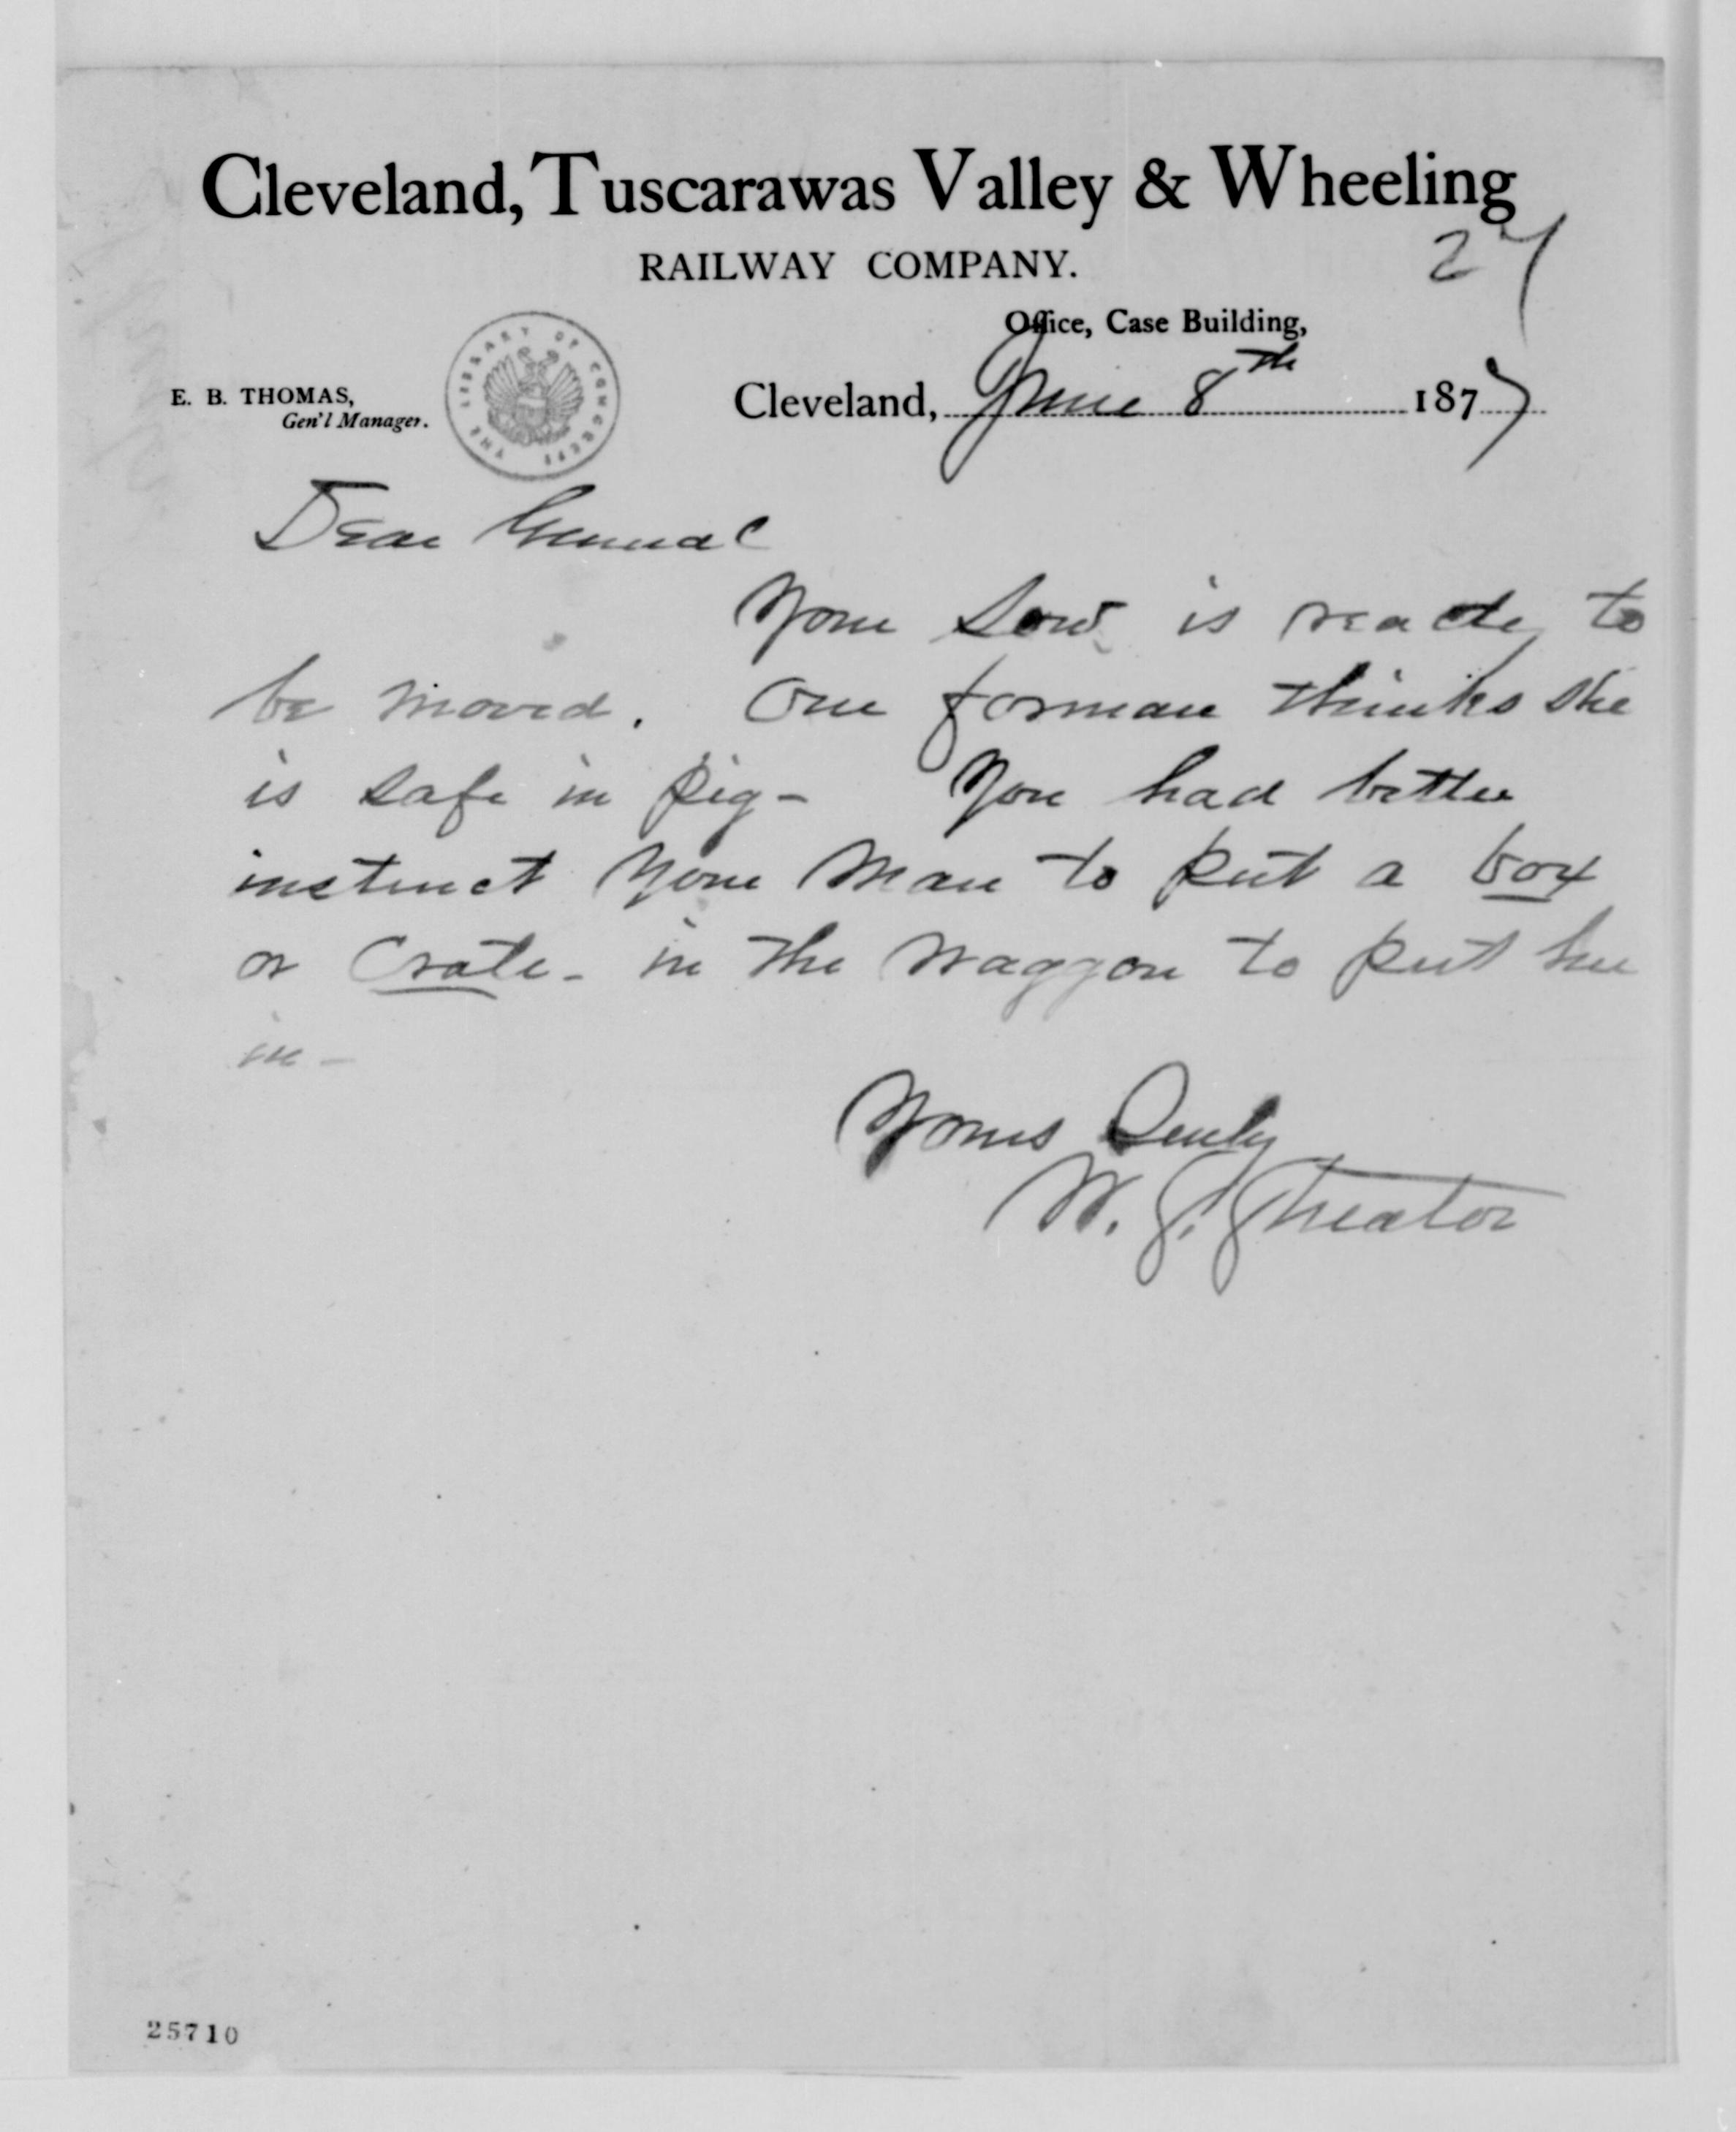 Cleveland, Tuscarawas Valley & Wheeling
RAILWAY COMPANY.
27
Office, Case Building,
E. B. THOMAS,
Gen'l Manager.
THE LIBRARY OF CONGRESS
Cleveland, June 8th 1877
Dear General
Your Sow is ready to
be moved. Our forman thinks she
is safe in pig- You had better
instruct your man to put a box
or Crate- in the waggon to put her
in-
Yours Truly
W. S. Streator
25710